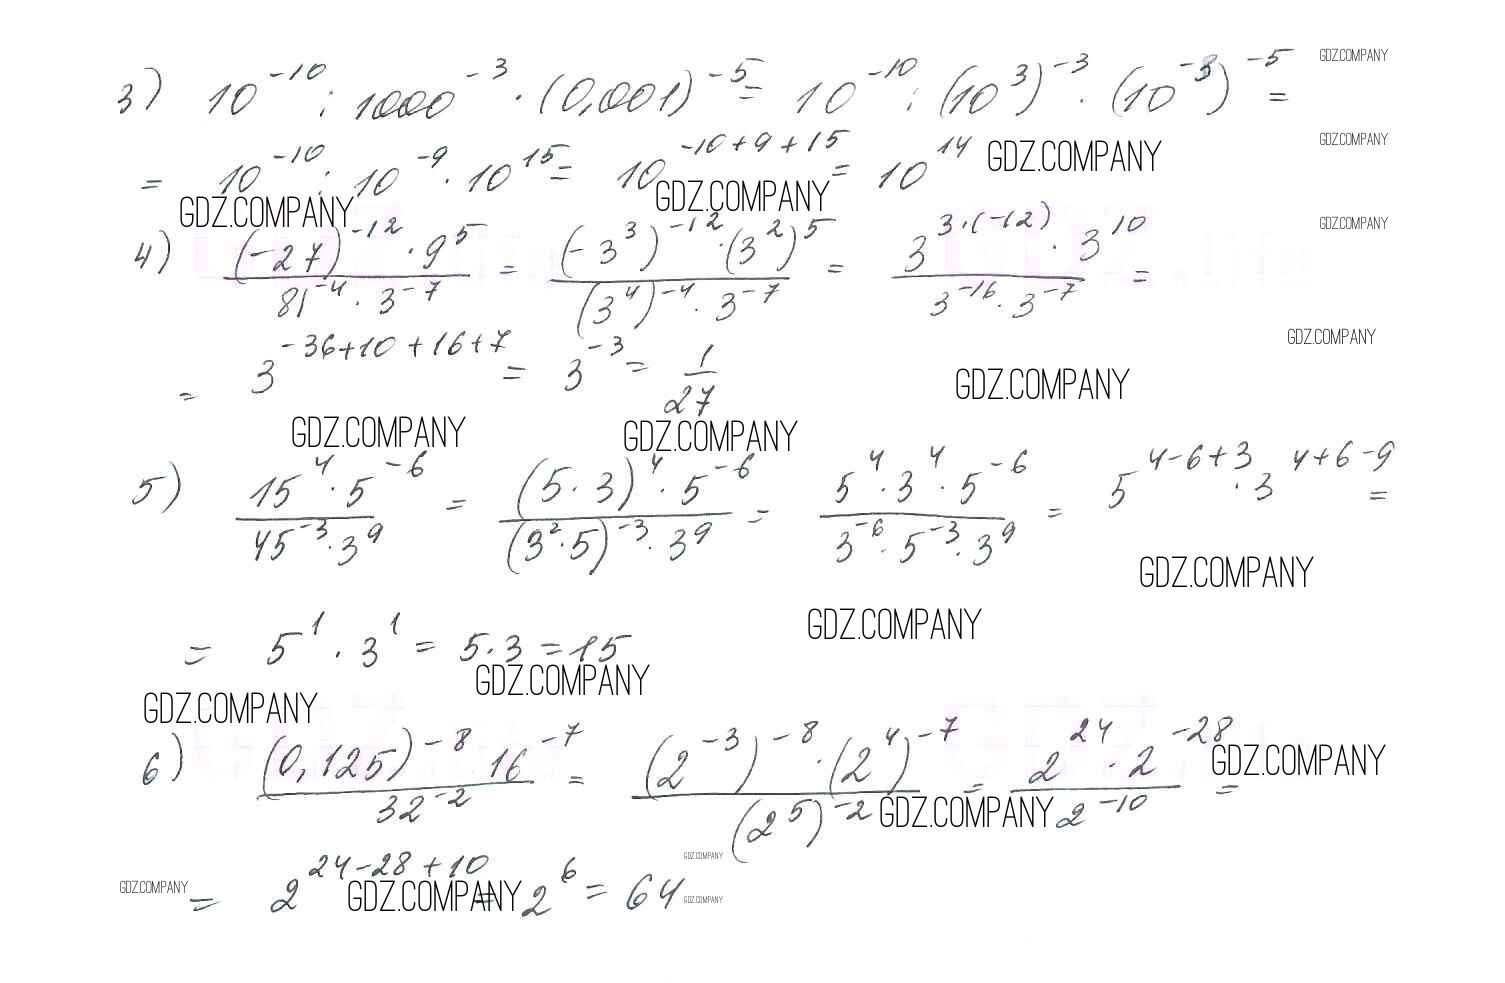 3) 10^{-10} : 1000^{-3} · (0,001)^{-5} = 10^{-10} : (10^3)^{-3} · (10^{-3})^{-5} = GDZ.COMPANY
GDZ.COMPANY
= 10^{-10} : 10^{-9} · 10^{15} = 10^{-10+9+15} = 10^{14} GDZ.COMPANY
GDZ.COMPANY GDZ.COMPANY GDZ.COMPANY
4) \frac{(-27)^{-12} · 9^5}{81^{-4} · 3^{-7}} = \frac{(-3^3)^{-12} · (3^2)^5}{(3^4)^{-4} · 3^{-7}} = \frac{3^{3·(-12)} · 3^{10}}{3^{-16} · 3^{-7}} =
GDZ.COMPANY
= 3^{-36+10+16+7} = 3^{-3} = \frac{1}{27} GDZ.COMPANY
GDZ.COMPANY GDZ.COMPANY
5) \frac{15^4 · 5^{-6}}{45^{-3} · 3^9} = \frac{(5·3)^4 · 5^{-6}}{(3^2·5)^{-3} · 3^9} = \frac{5^4 · 3^4 · 5^{-6}}{3^{-6} · 5^{-3} · 3^9} = 5^{4-6+3} · 3^{4+6-9} =
GDZ.COMPANY
GDZ.COMPANY
= 5^1 · 3^1 = 5·3 = 15
GDZ.COMPANY
GDZ.COMPANY
6) \frac{(0,125)^{-8} 16^{-7}}{32^{-2}} = \frac{(2^{-3})^{-8} · (2^4)^{-7}}{(2^5)^{-2}} = \frac{2^{24} · 2^{-28}}{2^{-10}} = GDZ.COMPANY
GDZ.COMPANY
GDZ.COMPANY
= 2^{24-28+10} = 2^6 = 64
GDZ.COMPANY GDZ.COMPANY GDZ.COMPANY